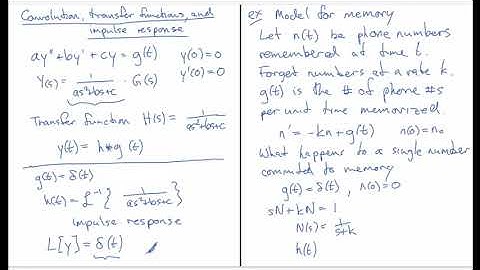 Convolution, transfer functions, and
impulse response
ay" + by' + cy = g(t) y(0) = 0
y'(0) = 0
Y(s) = 1/(as²+bs+c) · G(s)
Transfer function H(s) = 1/(as²+bs+c)
y(t) = h*g (t)
g(t) = δ(t)
h(t) = ℒ⁻¹{ 1/(as²+bs+c) }
impulse response
L[y] = δ(t)
ex: Model for memory
Let n(t) be phone numbers
remembered at time t.
Forget numbers at a rate k.
g(t) is the # of phone #s
per unit time memorized.
n' = -kn + g(t) n(0) = n₀
What happens to a single number
commuted to memory
g(t) = δ(t), n(0) = 0
sN + kN = 1
N(s) = 1/(s+k)
h(t)